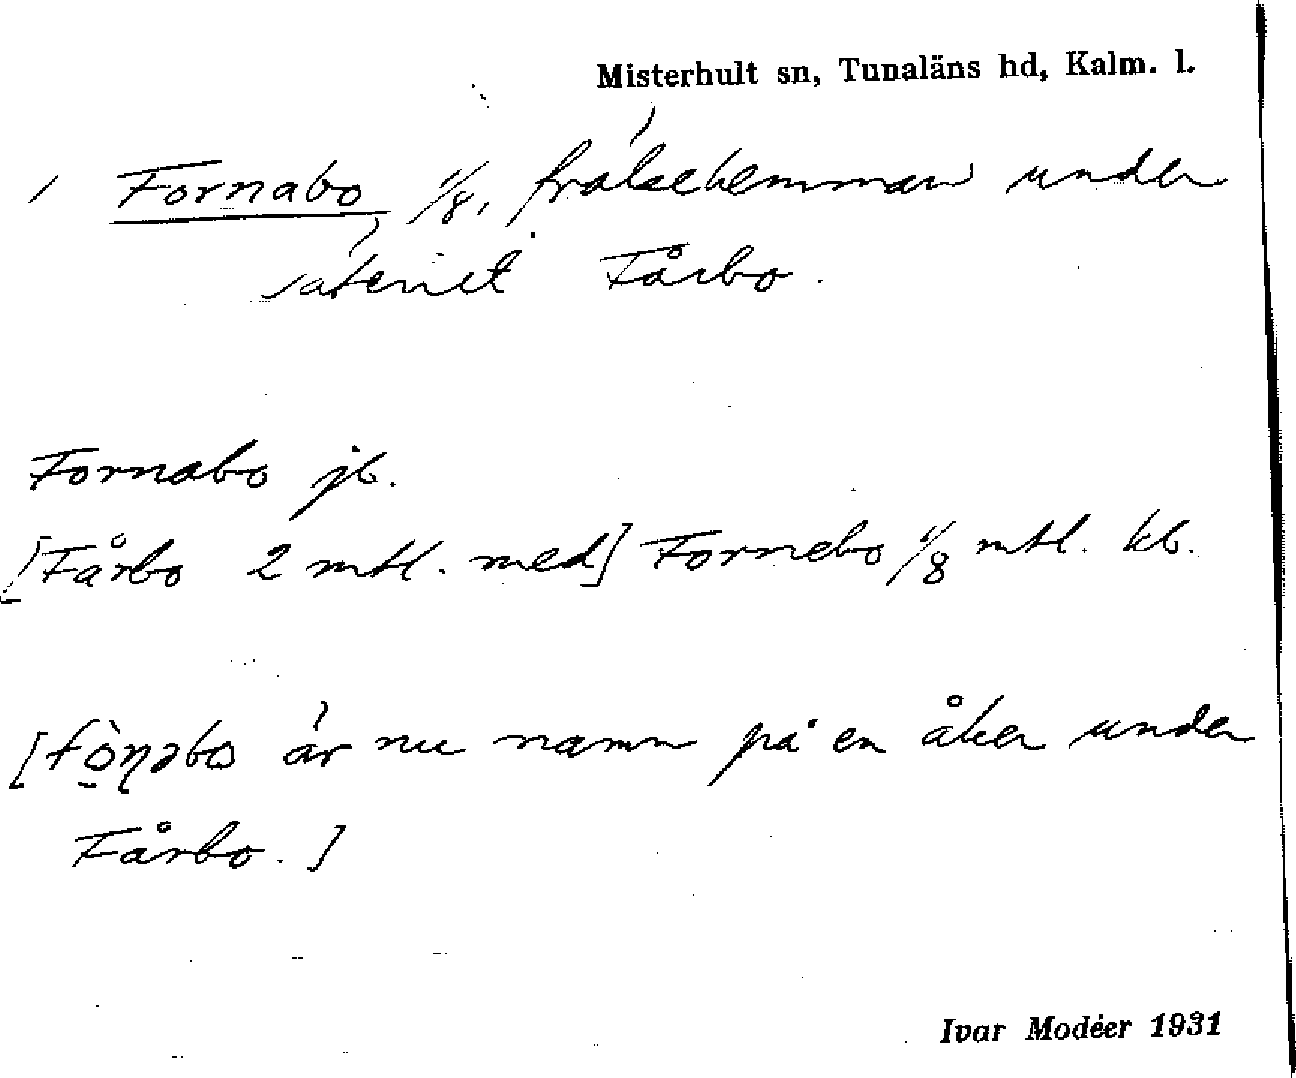 Misterhult sn, Tunaläns hd, Kalm. l.
/ Fornabo 1/8, frälsehemman under
säteriet Fårbo.
Fornabo jb.
[Fårbo 2 mtl. med] Fornebo 1/8 mtl. kb.
[fò̠ɳəbo är nu namn på en åker under
Fårbo.]
Ivar Modéer 1931